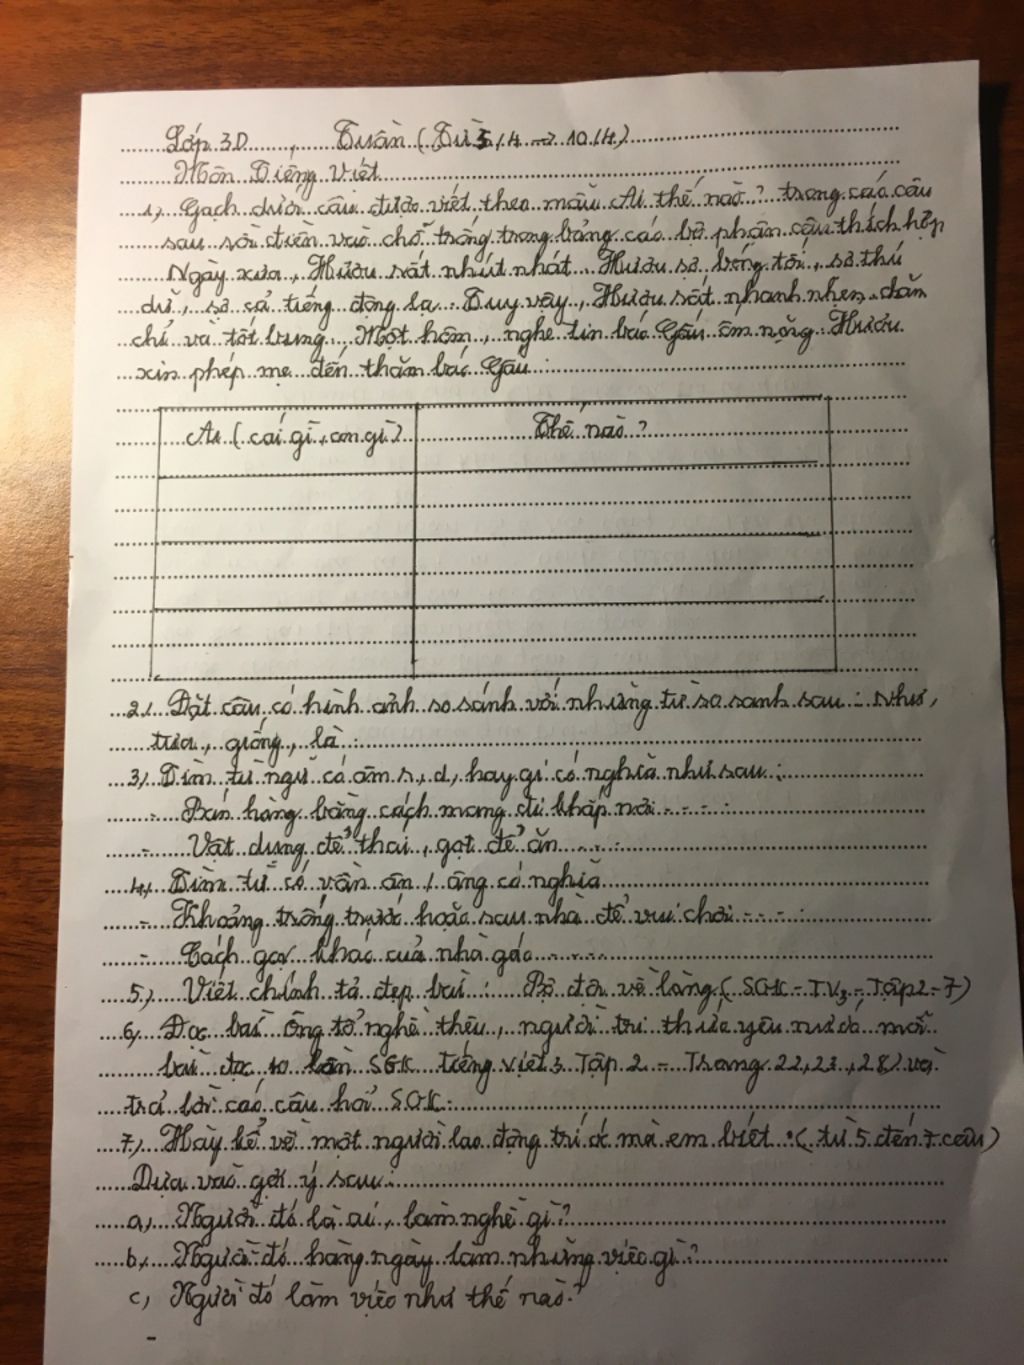 Lớp 3D , Tuần ( Từ 5/4 → 10/4)
Môn Tiếng Việt
1, Gạch dưới câu được viết theo mẫu Ai thế nào ? trong các câu
sau rồi điền vào chỗ trống trong bảng các bộ phận câu thích hợp
Ngày xưa, Hươu rất nhút nhát. Hươu sợ bóng tối, sợ thú
dữ, sợ cả tiếng động lạ. Tuy vậy, Hươu rất nhanh nhẹn, chăm
chỉ và tốt bụng. Một hôm, nghe tin bác Gấu ốm nặng. Hươu
xin phép mẹ đến thăm bác Gấu.
Ai ( cái gì, con gì) Thế nào ?
2. Đặt câu có hình ảnh so sánh với những từ so sanh sau : Như,
tựa, giống, là :
3, Tìm từ ngữ có âm r, d, hay gi có nghĩa như sau :
- Bán hàng bằng cách mang đi khắp nơi ....:
- Vật dụng để thái, gọt để ăn ....:
4, Tìm từ có vần ân / âng có nghĩa
- Khoảng trống trước hoặc sau nhà để vui chơi ....:
- Cách gọi khác của nhà gác ....
5, Viết chính tả đẹp bài : Bộ đội về làng ( SGK - TV3 - Tập 2 - 7)
6, Đọc bài Ông tổ nghề thêu, người tri thức yêu nước mỗi
bài đọc 10 lần SGK tiếng việt 3 Tập 2 - Trang 22, 23, 28) và
trả lời các câu hỏi SGK.
7, Hãy kể về một người lao động trí óc mà em biết . ( từ 5 đến 7 câu)
Dựa vào gợi ý sau :
a, Người đó là ai, làm nghề gì ?
b, Người đó hàng ngày làm những việc gì ?
c, Người đó làm việc như thế nào ?
-